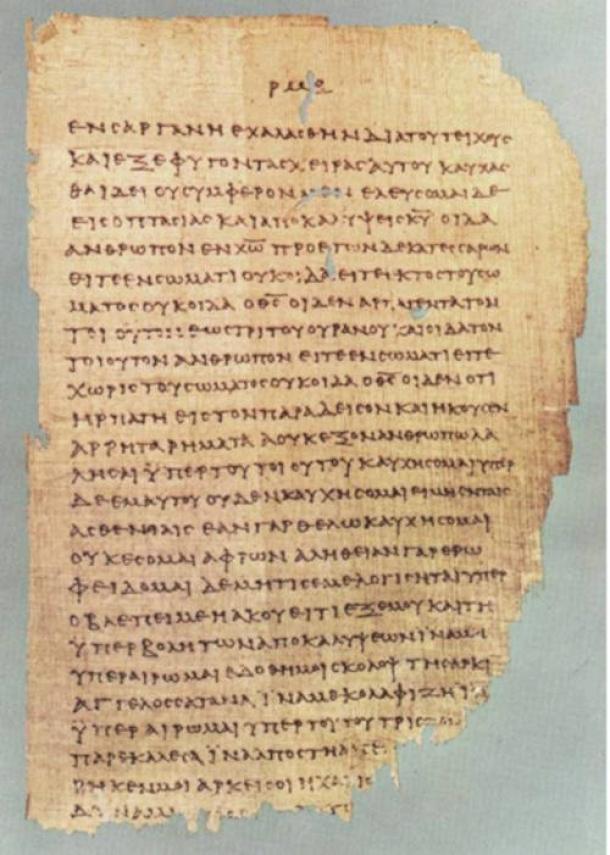 ΡΜΕ
ΕΝ ΣΑΡΓΑΝΗ ΕΧΑΛΑΣΘΗΝ ΔΙΑ ΤΟΥ ΤΕΙΧΟΥΣ
ΚΑΙ ΕΞΕΦΥΓΟΝ ΤΑΣ ΧΕΙΡΑΣ ΑΥΤΟΥ ΚΑΥΧΑΣ
ΘΑΙ ΔΕΙ ΟΥ ΣΥΜΦΕΡΟΝ ΕΛΕΥΣΟΜΑΙ ΔΕ
ΕΙΣ ΟΠΤΑΣΙΑΣ ΚΑΙ ΑΠΟΚΑΛΥΨΕΙΣ Κ̅Υ̅ ΟΙΔΑ
ΑΝΘΡΩΠΟΝ ΕΝ Χ̅Ω̅ ΠΡΟ ΕΤΩΝ ΔΕΚΑΤΕΣΣΑΡΩΝ
ΕΙΤΕ ΕΝ ΣΩΜΑΤΙ ΟΥΚ ΟΙΔΑ ΕΙΤΕ ΕΚΤΟΣ ΤΟΥ ΣΩ
ΜΑΤΟΣ ΟΥΚ ΟΙΔΑ Ο Θ̅Σ̅ ΟΙΔΕΝ ΑΡΠΑΓΕΝΤΑ ΤΟΝ
ΤΟΙΟΥΤΟΝ ΕΩΣ ΤΡΙΤΟΥ ΟΥΡΑΝΟΥ ΚΑΙ ΟΙΔΑ ΤΟΝ
ΤΟΙΟΥΤΟΝ ΑΝΘΡΩΠΟΝ ΕΙΤΕ ΕΝ ΣΩΜΑΤΙ ΕΙΤΕ
ΧΩΡΙΣ ΤΟΥ ΣΩΜΑΤΟΣ ΟΥΚ ΟΙΔΑ Ο Θ̅Σ̅ ΟΙΔΕΝ ΟΤΙ
ΗΡΠΑΓΗ ΕΙΣ ΤΟΝ ΠΑΡΑΔΕΙΣΟΝ ΚΑΙ ΗΚΟΥΣΕΝ
ΑΡΡΗΤΑ ΡΗΜΑΤΑ Α ΟΥΚ ΕΞΟΝ ΑΝΘΡΩΠΩ ΛΑ
ΛΗΣΑΙ ΫΠΕΡ ΤΟΥ ΤΟΙΟΥΤΟΥ ΚΑΥΧΗΣΟΜΑΙ ΥΠΕΡ
ΔΕ ΕΜΑΥΤΟΥ ΟΥΔΕΝ ΚΑΥΧΗΣΟΜΑΙ ΕΙ ΜΗ ΕΝ ΤΑΙΣ
ΑΣΘΕΝΕΙΑΙΣ ΕΑΝ ΓΑΡ ΘΕΛΩ ΚΑΥΧΗΣΟΜΑΙ
ΟΥΚ ΕΣΟΜΑΙ ΑΦΡΩΝ ΑΛΗΘΕΙΑΝ ΓΑΡ ΕΡΩ
ΦΕΙΔΟΜΑΙ ΔΕ ΜΗ ΤΙΣ ΕΜΕ ΛΟΓΙΣΗΤΑΙ ΥΠΕΡ
Ο ΒΛΕΠΕΙ ΜΕ Η ΑΚΟΥΕΙ ΤΙ ΕΞ ΕΜΟΥ ΚΑΙ ΤΗ
ΫΠΕΡΒΟΛΗ ΤΩΝ ΑΠΟΚΑΛΥΨΕΩΝ ΪΝΑ ΜΗ
ΥΠΕΡΑΙΡΩΜΑΙ ΕΔΟΘΗ ΜΟΙ ΣΚΟΛΟΨ ΤΗ ΣΑΡΚΙ
ΑΓΓΕΛΟΣ ΣΑΤΑΝΑ ΪΝΑ ΜΕ ΚΟΛΑΦΙΖΗ
ΫΠΕΡΑΙΡΩΜΑΙ ΥΠΕΡ ΤΟΥΤΟΥ ΤΡΙΣ
ΠΑΡΕΚΑΛΕΣΑ ΪΝΑ ΑΠΟΣΤΗ
ΡΗΚΕΝ ΜΟΙ ΑΡΚΕΙ ΣΟΙ Η ΧΑΡΙΣ